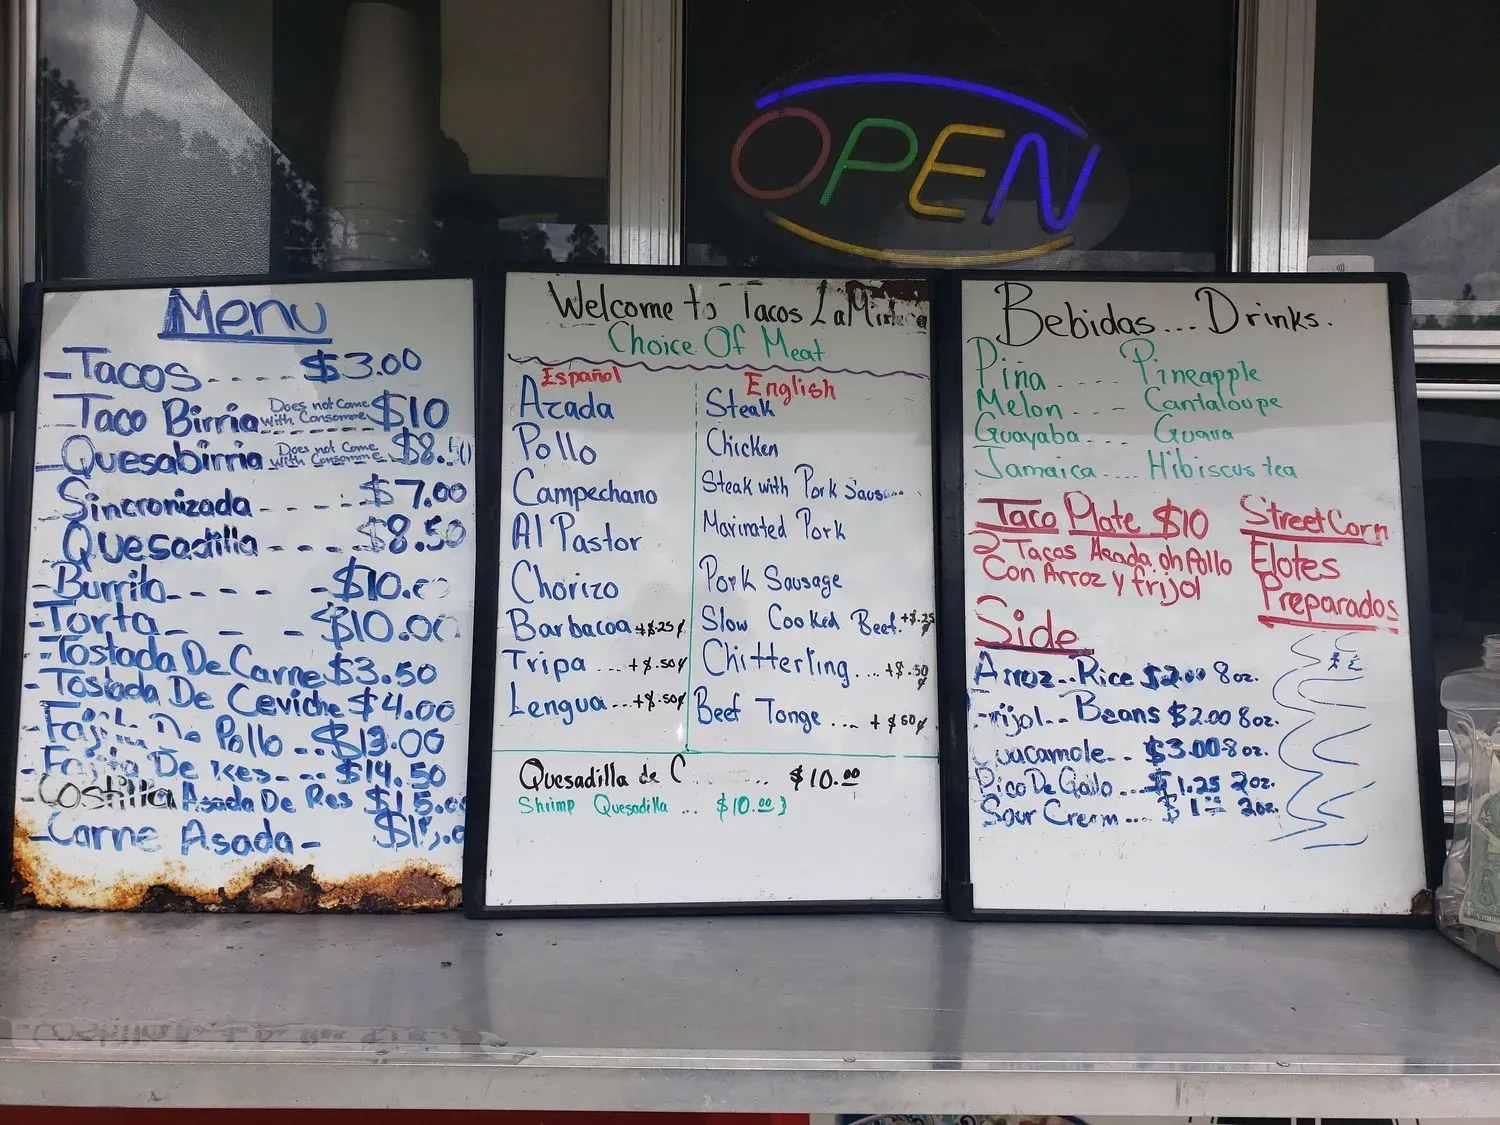 OPEN
Menu
-Tacos....$3.00
-Taco Birria Does not Come With Consome $10
-Quesabirria Does not Come With Consome $8.50
-Sincronizada - - - - $7.00
-Quesadilla - - - - $8.50
-Burrito - - - - $10.00
-Torta - - - $10.00
-Tostada De Carne $3.50
-Tostada De Ceviche $4.00
-Fajita De Pollo .. $13.00
-Fajita De Res - - - $14.50
-Costilla Asada De Res $15.00
-Carne Asada -
Welcome to Tacos La
Choice Of Meat
Español English
Azada Steak
Pollo Chicken
Campechano Steak with Pork
Al Pastor Marinated Pork
Chorizo Pork Sausage
Barbacoa +$.25¢ Slow Cooked Beef +$.25¢
Tripa ... +$.50¢ Chitterling ... +$.50¢
Lengua ... +$.50¢ Beef Tonge ... +$50¢
Quesadilla de C ... $10.00
Shrimp Quesadilla ... $10.00
Bebidas... Drinks.
Piña .... Pineapple
Melon .. - Cantaloupe
Guayaba .... Guava
Jamaica ... Hibiscus tea
Taco Plate $10
2 Tacos Azada oh Pollo
Con Arroz y frijol
Street Corn
Elotes
Preparados
Side
Arroz..Rice $2.00 8oz.
Frijol.. Beans $2.00 8oz.
Guacamole.. $3.00 8oz.
Pico De Gallo ... $1.25 2oz.
Sour Cream ... $1 2oz.